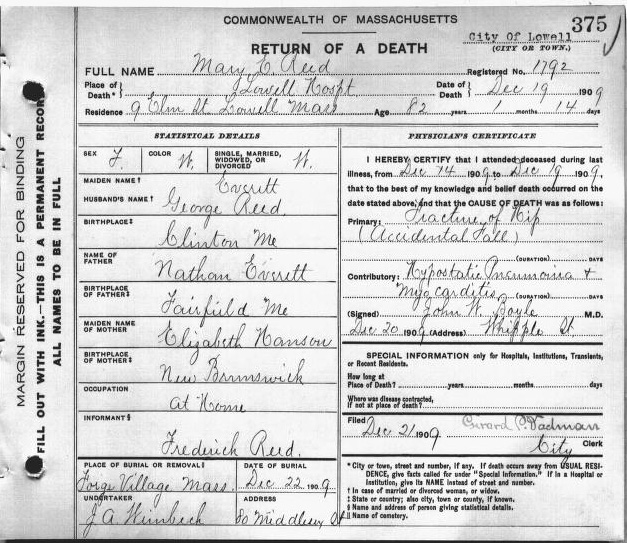 COMMONWEALTH OF MASSACHUSETTS
375
City Of Lowell
(CITY OR TOWN.)
RETURN OF A DEATH
FULL NAME Mary E. Reed Registered No. 1792
Place of Death* } Lowell Hospt Date of Death } Dec 19 1909
Residence 9 Elm St Lowell Mass Age 82 years 1 months 14 days
MARGIN RESERVED FOR BINDING
FILL OUT WITH INK.—THIS IS A PERMANENT RECORD
ALL NAMES TO BE IN FULL
STATISTICAL DETAILS
SEX F. COLOR W. SINGLE, MARRIED, WIDOWED, OR DIVORCED W.
MAIDEN NAME† Everitt
HUSBAND'S NAME† George Reed.
BIRTHPLACE‡ Clinton Me
NAME OF FATHER Nathan Everett
BIRTHPLACE OF FATHER‡ Fairfield Me
MAIDEN NAME OF MOTHER Elizabeth Hanson
BIRTHPLACE OF MOTHER‡ New Brunswick
OCCUPATION At Home
INFORMANT§ Frederick Reed.
PLACE OF BURIAL OR REMOVAL‖ Forge Village Mass. DATE OF BURIAL Dec 22 1909
UNDERTAKER J A Weinbeck ADDRESS 80 Middlesex St
PHYSICIAN'S CERTIFICATE
I HEREBY CERTIFY that I attended deceased during last
illness, from Dec 14 1909, to Dec 19 1909,
that to the best of my knowledge and belief death occurred on the
date stated above, and that the CAUSE OF DEATH was as follows:
Primary: Fracture of Hip
(Accidental Fall)
(DURATION) DAYS
Contributory: Hypostatic Pneumonia +
Myocarditis (DURATION) DAYS
(Signed) John W. Boyle M.D.
Dec 20 1909 (Address) Whipple St
SPECIAL INFORMATION only for Hospitals, Institutions, Transients, or Recent Residents.
How long at
Place of Death? years months days
Where was disease contracted,
if not at place of death?
Filed Dec 21 1909 Girard P. Dadman
City Clerk
* City or town, street and number, if any. If death occurs away from USUAL RESIDENCE, give facts called for under "Special Information." If in a Hospital or Institution, give its NAME instead of street and number.
† In case of married or divorced woman, or widow.
‡ State or country; also city, town or county, if known.
§ Name and address of person giving statistical details.
‖ Name of cemetery.